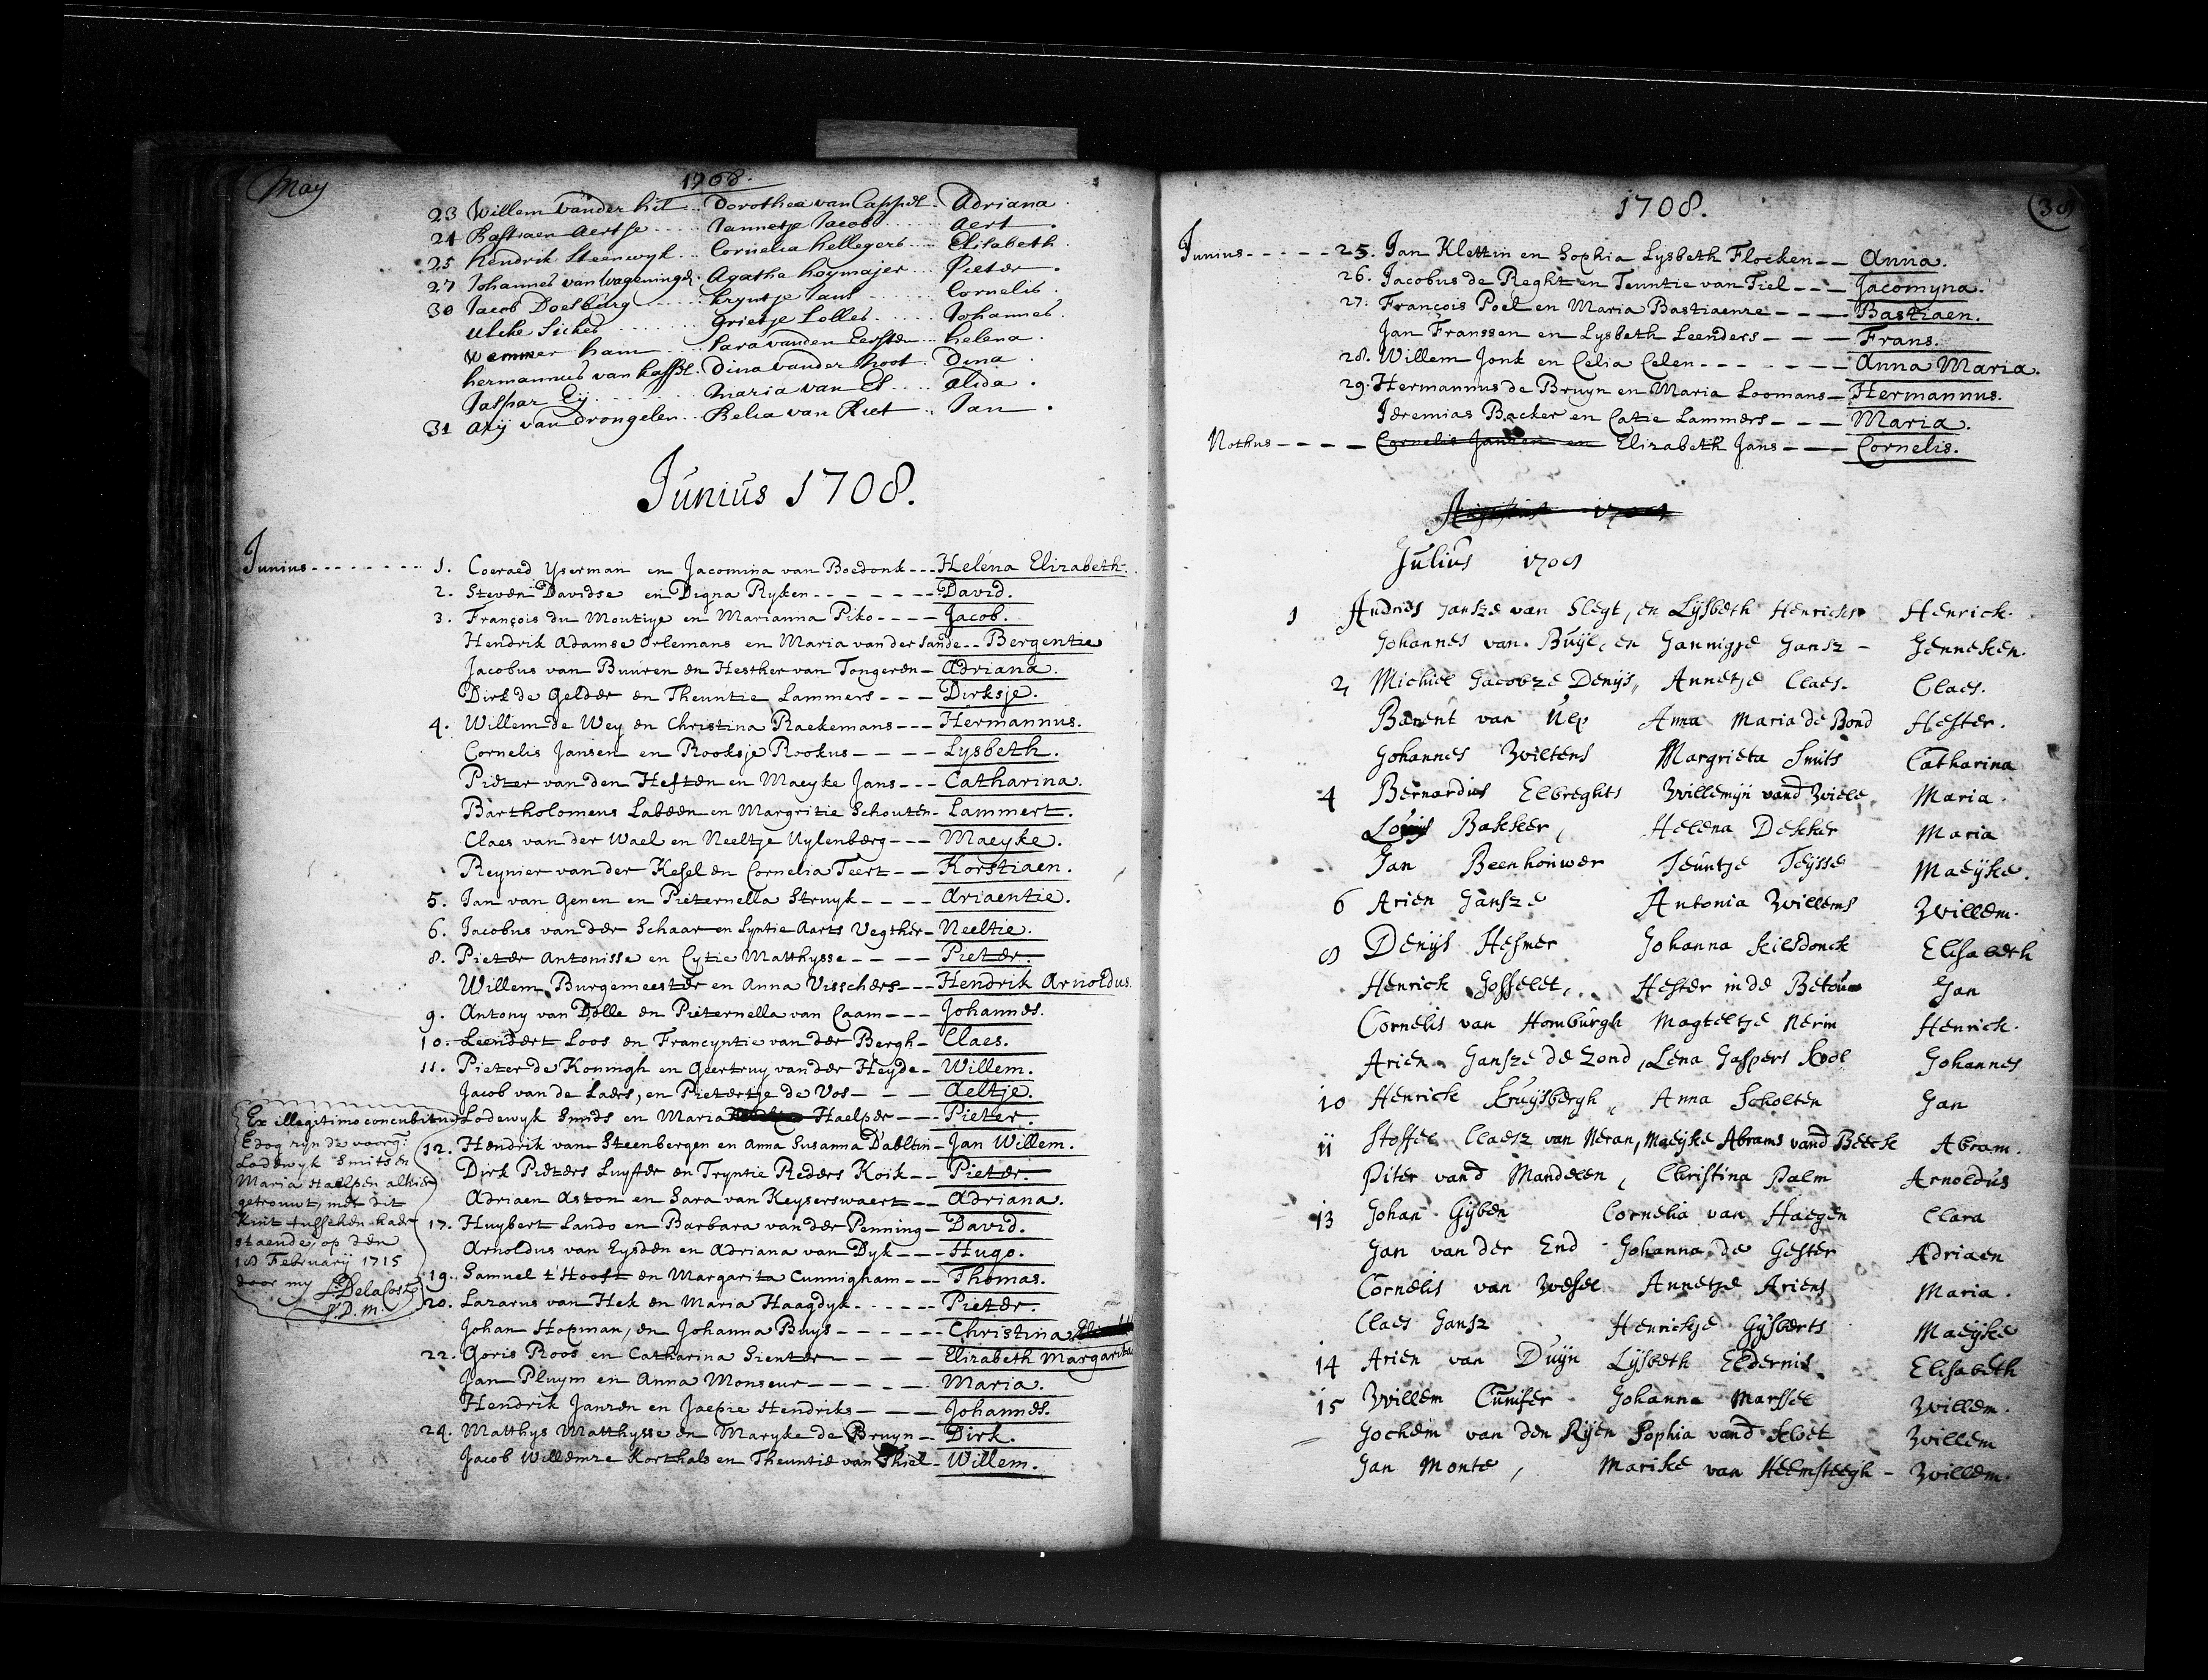 May
1708.
23 Willem vander hil .. Dorothea van Cappel. Adriana.
24 Bastiaen Aertse .... Jannetje Jacobs ..... Aert.
25 hendrik Steenwyk ... Cornelia hellegers .... Elisabeth.
27 Johannes van Wageninge. Agatha hoymajer ... Pieter.
30 Jacob Doesburg ..... kryntje Jans ....... Cornelis.
Ulcke Sickes ....... Grietje Lolles ..... Johannes.
Wemmer ham ..... Sara vanden Eersten .. helena.
hermannus van hassel. Dina vander hoot. Dina.
Jaspar Eij ....... Maria van Es ..... Alida.
31 Arij van drongelen .. Belia van Riet .. Jan.
Junius 1708.
Junius -------- 1. Coeraed Yserman en Jacomina van Boedonk --- Helena Elizabeth.
2. Steven Davidse en Digna Ryken ------- David.
3. François du Moutiye en Marianna Piko ---- Jacob.
Hendrik Adamse Orlemans en Maria van der Sande -- Bergentie
Jacobus van Buuren en Hesther van Tongeren - Adriana.
Dirk de Gelder en Theuntie Lammers --- Dirksje.
4. Willem de Wey en Christina Raekemans --- Hermannus.
Cornelis Jansen en Rooksje Rookus ---- Lysbeth.
Pieter van den Heften en Maeyke Jans --- Catharina.
Bartholomeus Labeen en Margritie Schouten - Lammert.
Claes van der Wael en Neeltje Uylenberg --- Maeyke.
Reynier van der Kesel en Cornelia Teert -- Korstiaen.
5. Jan van Genen en Pieternella Struyk ---- Ariaentie.
6. Jacobus van der Schaar en Syntie Aarts Vegther - Neeltie.
8. Pieter Antonisse en Cytie Matthysse ---- Pieter.
Willem Burgemeester en Anna Visschers --- Hendrik Arnoldus.
9. Antony van Dolle en Pieternella van Caam --- Johannes.
10. Leendert Loos en Francyntie van der Bergh - Claes.
11. Pieter de Koningh en Geertruy van der Heyde - Willem.
Jacob van de Laers, en Pietertje de Vos --- Aeltje.
Lodewyk Smids en Maria Haelper --- Pieter.
Ex illegitimo concubitu
Edog zyn de voorg:
Lodewyk Smits en
Maria Haelpen alhier
getrouwt, met dit
Kint tusschen haer
staende, op den
18 February 1715
door my S: Delacoste
P. D. M.
12. Hendrik van Steenbergen en Anna Susanna Dabltin - Jan Willem.
Dirk Pieters Luyster en Tryntie Reders Koik -- Pieter.
Adriaen Aston en Sara van Keyserswaert -- Adriana.
17. Huybert Lando en Barbara van der Penning - David.
Arnoldus van Eysden en Adriana van Dyk --- Hugo.
19. Samuel t'Hooft en Margarita Cunnigham --- Thomas.
20. Lazarus van Hek en Maria Haagdyk ------ Pieter.
Johan Hopman, en Johanna Buys ----- Christina
22. Goris Roos en Catharina Sienter ---- Elizabeth Margarita
Jan Pluym en Anna Monseur ------ Maria.
Hendrik Janzen en Jaepie Hendriks ---- Johannes.
24. Matthys Matthysse en Maryke de Bruyn - Dirk.
Jacob Willemze Korthals en Theuntie van Thiel - Willem.
1708.
(38)
Junius ----- 25. Jan Klettin en Sophia Lysbeth Flocken -- Anna.
26. Jacobus de Reght en Teuntie van Tiel --- Jacomyna.
27. François Poel en Maria Bastiaenze --- Bastiaen.
Jan Franssen en Lysbeth Leenders --- Frans.
28. Willem Jonk en Celia Celen ------- Anna Maria.
29. Hermannus de Bruyn en Maria Loomans - Hermannus.
Jeremias Backer en Catie Lammers --- Maria.
Nothus ---- Cornelis Jansen en Elizabeth Jans --- Cornelis.
Augustus 1708
Julius 1708
1 Andries Jansze van Slegt, en Lysbeth Henricks Henrick.
Johannes van Buyl, en Jannigje Jansz - Jenneken.
2 Michiel Jacobze Denys, Annetje Claes. Claes.
Barent van Ulp Anna Maria de Bond Hester.
Johannes Wiltens Margrieta Smits Catharina
4 Bernardus Elbreghts Willemijn vand Wiele, Maria.
Louys Bakker, Helena Dekker Maria
Jan Beenhouwer Teuntje Teysse Maeyke.
6 Arien Jansze Antonia Willems Willem.
8 Denys Hesmer Johanna Kilsdonck Elisabeth
Henrick Josselet, Hester in de Betou Jan
Cornelis van Homburgh Magteltje Nerin Henrick.
Arien Jansze de Zond, Lena Jaspers Kool Johannes
10 Henrick Kruysbergh, Anna Scholten Jan
11 Stoffel Claesz van Neran, Maeyke Abrams vand Beeck Abram.
Piter vand Mandelen, Christina Palm Arnoldus
13 Johan Gyben Cornelia van Haegen Clara
Jan van der End Johanna de Gester Adriaen
Cornelis van Wesel Annetje Ariens Maria.
Claes Jansz Henrickje Gysberts Maeyke
14 Arien van Duyn Lysbeth Eldernis Elisabeth
15 Willem Cunifer Johanna Marssel Willem.
Jochem van den Ryen Sophia vand Kloet Willem
Jan Monte, Marike van Heemsteegh - Willem.